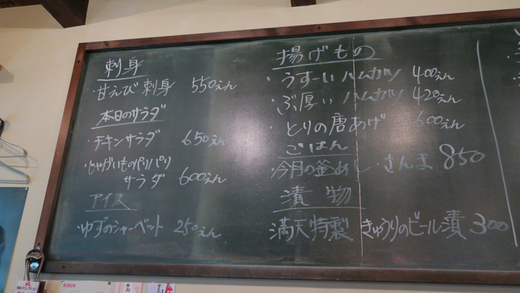 刺身
・甘えび刺身 550えん
本日のサラダ
・チキンサラダ 650えん
・じゃがいものパリパリ
サラダ 600えん
アイス
・ゆずのシャーベット 250えん
揚げもの
・うすーいハムカツ 400えん
・ぶ厚いハムカツ 420えん
・とりの唐あげ 600えん
ごはん
今月の釜めし・さんま 850
漬物
満天特製 きゅうりのビール漬 300